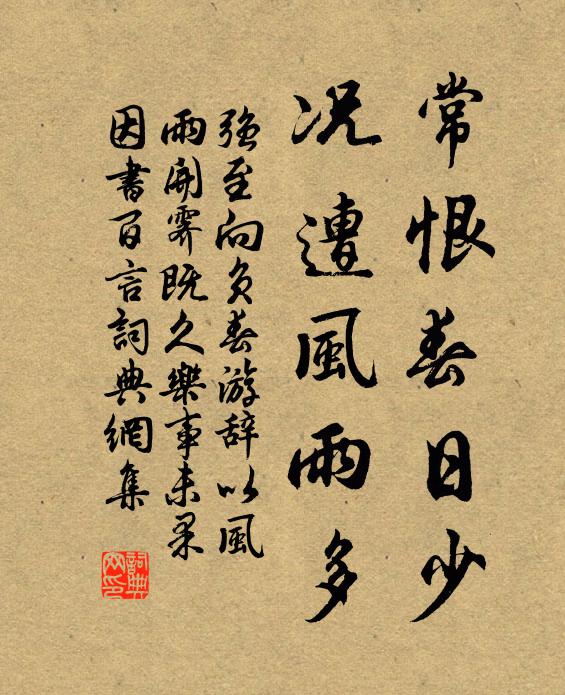 常恨春日少
況遭風雨多
強至向負春游辞以風
雨開霽既久樂事未果
因書百言詞典網集
詞典
网印